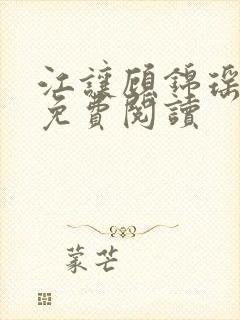 江讓顧錦瑤
免費閱讀
蒙芒